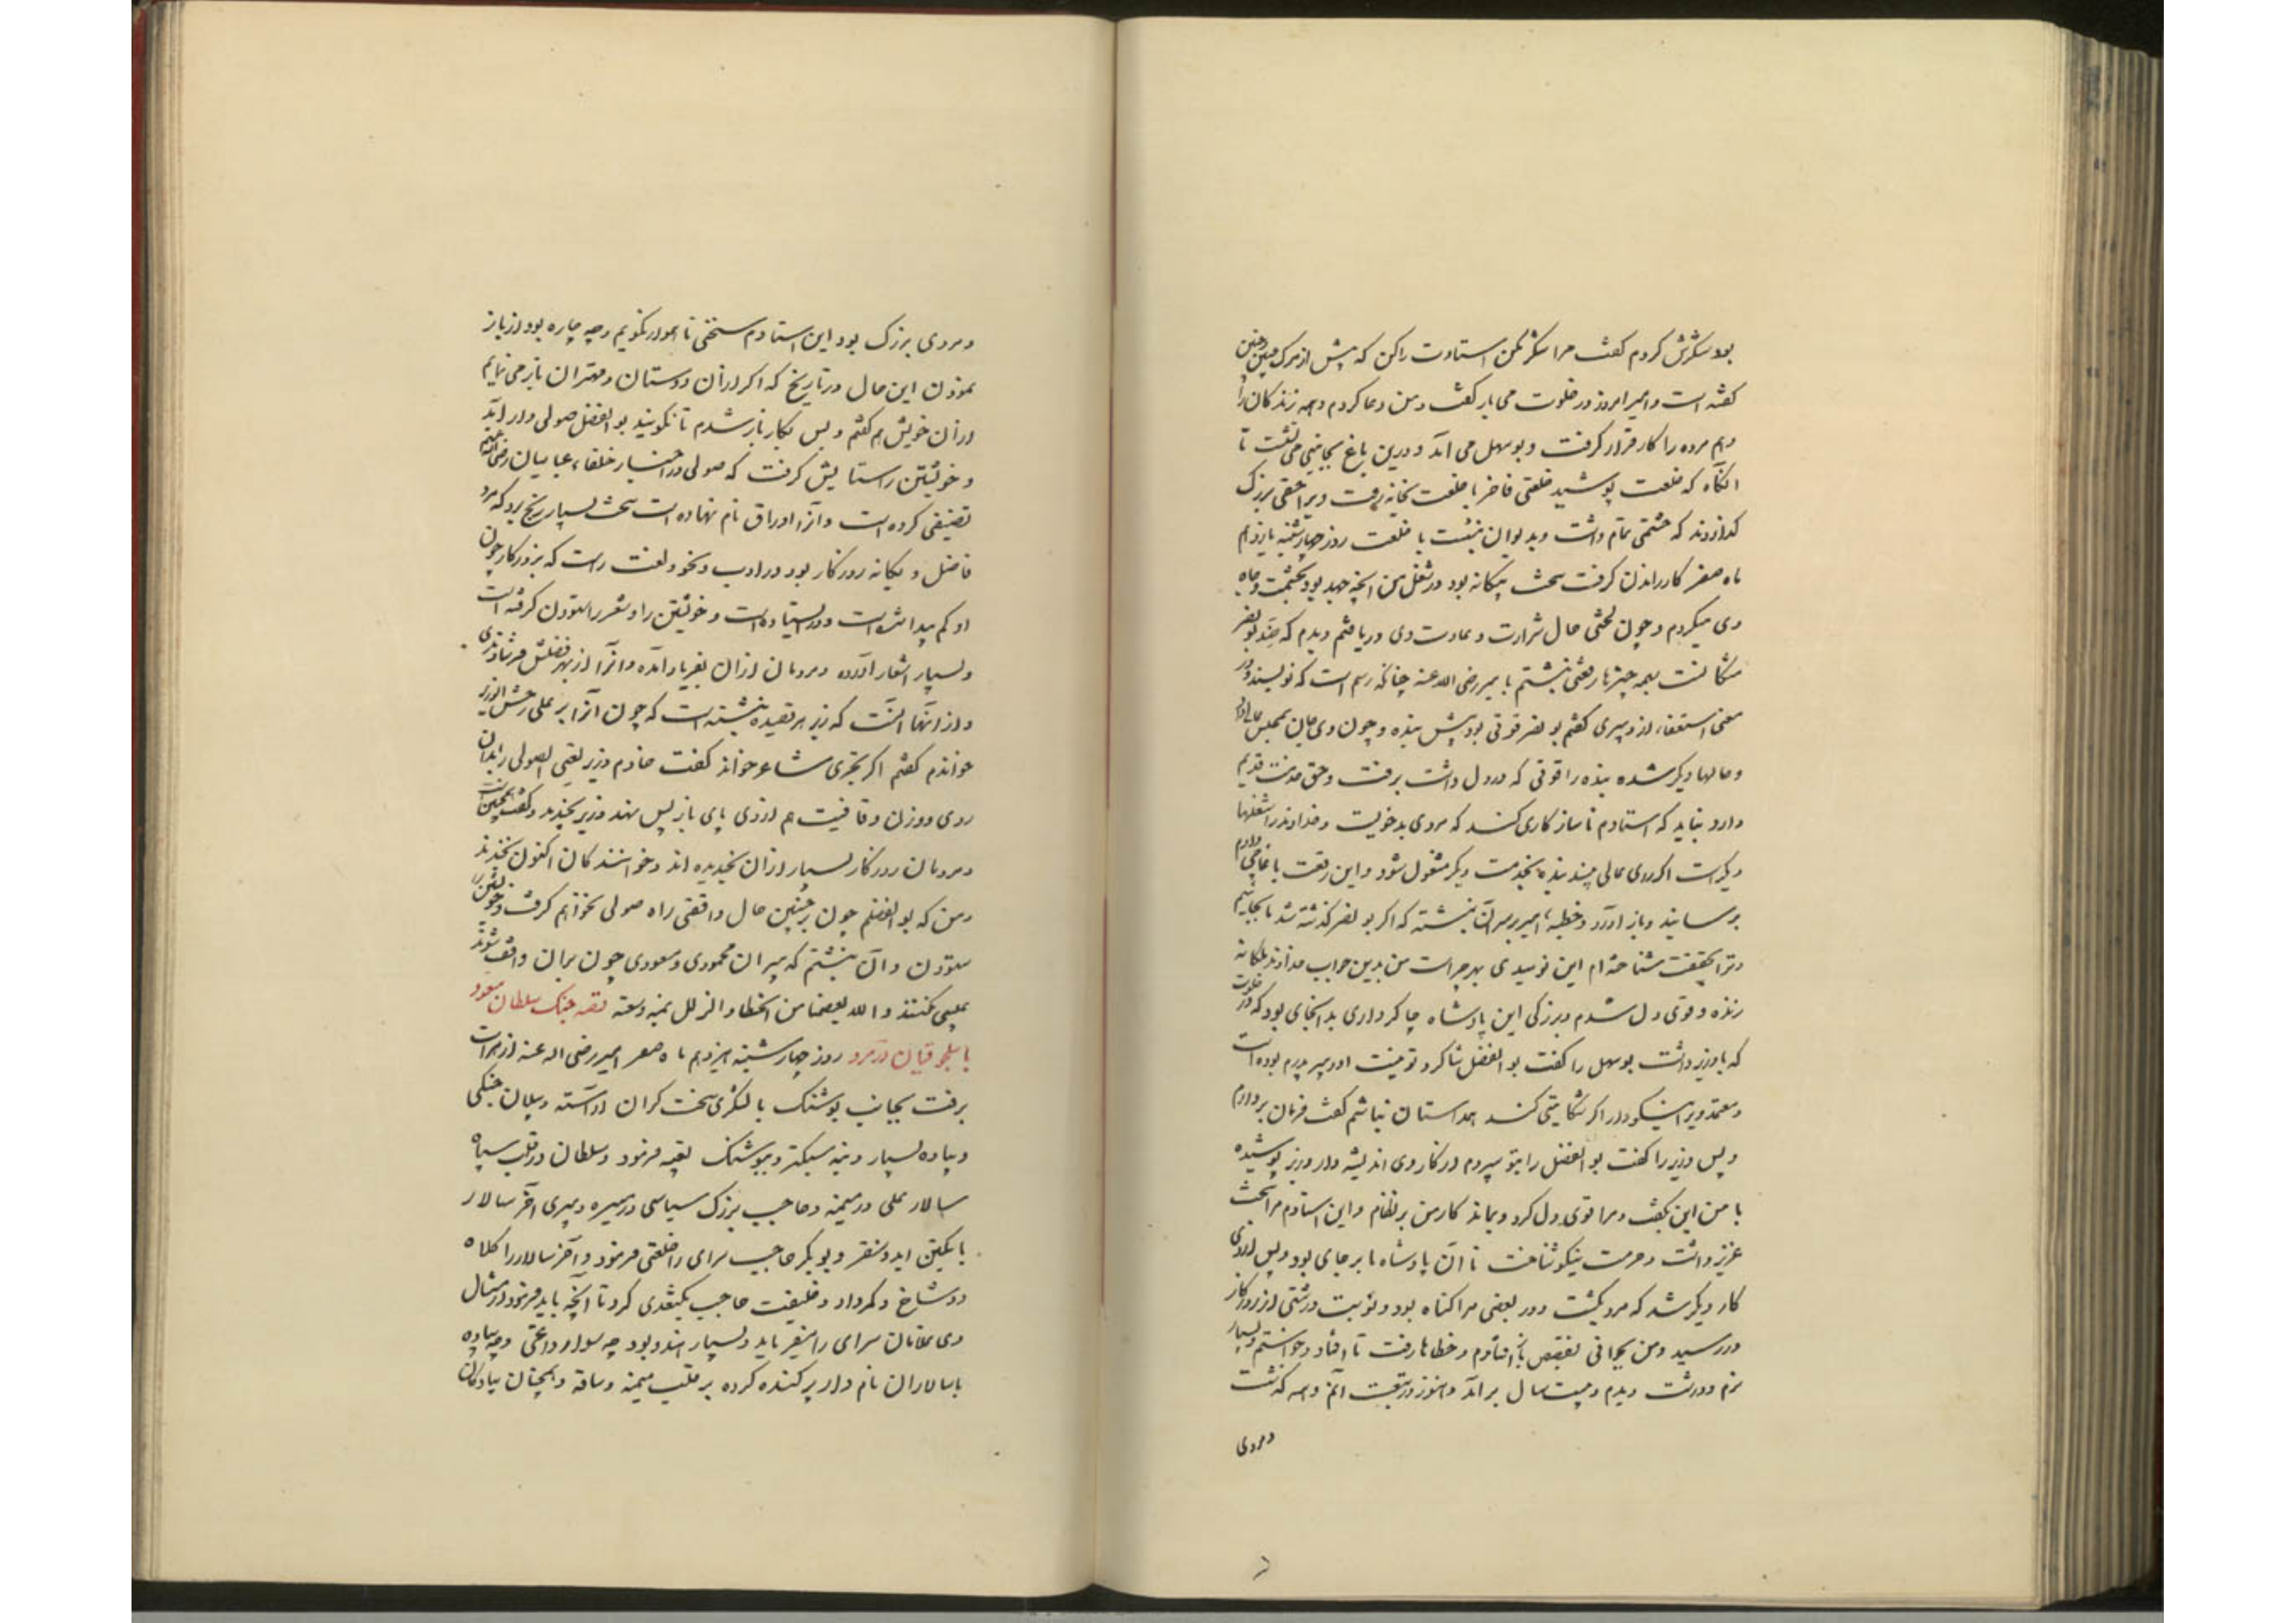 بود شکرش کردم گفت مرا شکر مکن استادت را کن که پیش از مرگ چنین و چنین
گفته است و امیر امروز در خلوت می باز گفت و من دعا کردم و همه زندگان را
و هم مرده را کار قرار گرفت و بوسهل می آمد و درین باغ بجانبی می نشست تا
آنگاه که خلعت پوشید خلعتی فاخر با خلعت بخانه رفت ویرا حقی بزرگ
گذاردند که حشمتی تمام داشت و بدیوان بنشست با خلعت روز چهارشنبه یازدهم
ماه صفر کار راندن گرفت سخت بیگانه بود در شغل من آنچه جهد بود بحشمت و جاه
وی میکردم و چون لختی حال شرارت و عادت وی دریافتم دیدم که ضد بونصر
مشکانست بهمه چیزها رقعتی نبشتم با میر رضی الله عنه چنانکه رسم است که نویسند در
معنی استعفاء از دبیری گفتم بونصر قوتی بود پیش بنده و چون وی جان بمجلس عالی داد
و حالها دیگر شده بنده را قوتی که در دل داشت برفت و حق خدمت قدیم
دارد نباید که استادم ناسازگاری کند که مردی بدخویست و خداوند را شغلها
دیگر است اگر رای عالی بیند بنده بخدمت دیگر مشغول شود و این رقعت با غاجی دادم
برسانید و باز آورد و خطبه امیر بر سر آن نبشته که اگر بونصر گذشته شد ما بجائیم
و ترا بحقیقت شناخته ام این نومیدی بهر چراست من بدین جواب خداوند ملکانه
زنده و قوی دل شدم و بزرگی این پادشاه چاکرداری بدانجای بود که در خلوت
که با وزیر داشت بوسهل را گفت بوالفضل شاگرد تو نیست او دبیر پدرم بوده است
و معتمد ویرا نیکو دار اگر شکایتی کند همداستان نباشم گفت فرمان بردارم
و پس وزیر را گفت بوالفضل را بتو سپردم از کار وی اندیشه دار وزیر پوشیده
با من این بگفت و مرا قوی دل کرد و بماند کار من بر نظام و این استادم مرا سخت
عزیز داشت و حرمت نیکو شناخت تا آن پادشاه بر جای بود و پس از وی
کار دیگر شد که مرد بگشت و در بعضی مرا گناه بود و نوبت درشتی از روزگار
در رسید و من بجوانی بقفص باز افتادم و خطاها رفت تا افتاد و خواستم و بسیار
نرم و درشت دیدم و بیست سال برآمد و هنوز در تبعت آنم و همه گذشت
و مردی
و مردی بزرگ بود این استادم سخنی ناهموار نگویم و چه چاره بود از باز
نمودن این حال در تاریخ که اگر از آن دوستان و مهتران باز می نمایم
از آن خویش هم گفتم و پس بکار باز شدم تا نگویند بوالفضل صولی وار آمد
و خویشتن را ستایش گرفت که صولی در اخبار خلفاء عباسیان رضی الله عنهم
تصنیفی کرده است و آنرا اوراق نام نهاده است سخت بسیار رنج برد که مرد
فاضل و یگانه روزگار بود در ادب و نحو و لغت راست که بروزگار چون
او کم پیدا شده است و در ایستاده است و خویشتن را و شعر را ستودن گرفته است
و بسیار اشعار آورده و مردمان از آن بفریاد آمده و آنرا از بهر فضلش فراستدندی
و از آنها آنست که زیر هر قصیده نبشته است که چون آنرا بر علی فرات الوزیر
خواندم گفتم اگر بحتری شاعر خواند گفت خادم وزیر یعنی الصولی را بدان
روی و وزن و قافیت هم از وی پای باز پس نهد وزیر بخندید و گفت همچنین است
و مردمان روزگار بسیار از آن بخندیده اند و خوانندگان اکنون بخندند
و من که بوالفضلم چون بر چنین حال واقفتی راه صولی نخواهم گرفت و خویشتن را
ستودن و آن نبشتم که پیران محمودی و مسعودی چون بران واقف شوند
عیبی نکنند و الله یعصمنا من الخطاء والزلل بمنه و سعة قصه جنگ سلطان مسعود
با سلجوقیان در مرو روز چهارشنبه هیزدهم ماه صفر امیر رضی الله عنه از هرات
برفت بجانب پوشنگ با لشکری سخت گران آراسته و پیلان جنگی
و پیاده بسیار و بنه سبکتر و ببوشنگ تعبیه فرمود و سلطان در قلب سپاه
سالار علی در میمنه و حاجب بزرگ سباسی در میسره و پیری آخر سالار
با بگتین ایدو سنقر و بوبکر حاجب سرای را خلعتی فرمود و آخر سالار را کلاه
دوشاخ و کمر داد و خلیفت حاجب بگتغدی کرد تا آنچه باید فرمود از مثال
وی غلامان سرای را میفرماید و بسیار هندو بود چه سوار و چه پیاده
با سالاران نام دار پراکنده کرده بر قلب میمنه و ساقه و همچنان پیادگان